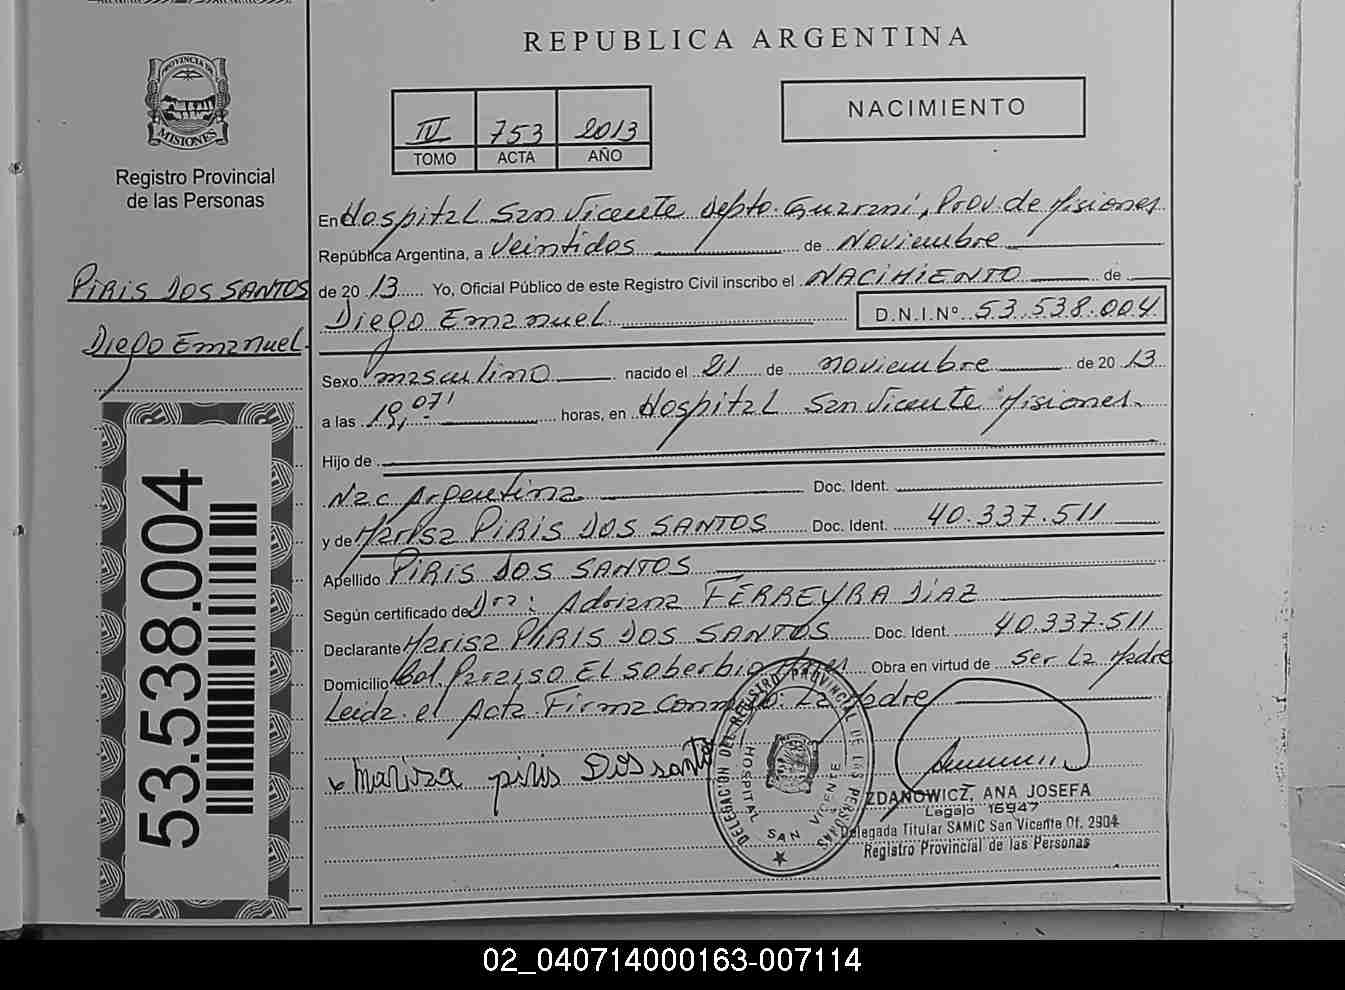 REPUBLICA ARGENTINA
NACIMIENTO
IV 753 2013
TOMO ACTA AÑO
PROVINCIA DE MISIONES
Registro Provincial
de las Personas
PIRIS DOS SANTOS
Diego Emanuel
53.538.004
En Hospital San Vicente Depto. Guaraní, Prov. de Misiones
República Argentina, a Veintidos de Noviembre
de 2013 Yo, Oficial Público de este Registro Civil inscribo el NACIMIENTO de
Diego Emanuel D.N.I.Nº 53.538.004
Sexo masculino nacido el 21 de noviembre de 2013
a las 19,07' horas, en Hospital San Vicente Misiones.
Hijo de
Nac. Argentina Doc. Ident.
y de Marisa PIRIS DOS SANTOS Doc. Ident. 40.337.511
Apellido PIRIS DOS SANTOS
Según certificado de Dra: Adriana FERREYRA DIAZ
Declarante Marisa PIRIS DOS SANTOS Doc. Ident. 40.337.511
Domicilio Col. Paraiso El Soberbio Obra en virtud de Ser La Madre
Leida el Acta Firma Conmigo: La Madre
Mariza piris Dos santo
DELEGACION DEL REGISTRO PROVINCIAL DE LAS PERSONAS
HOSPITAL SAN VICENTE
ZDANOWICZ, ANA JOSEFA
Legajo 16947
Delegada Titular SAMIC San Vicente Of. 2904
Registro Provincial de las Personas
02_040714000163-007114